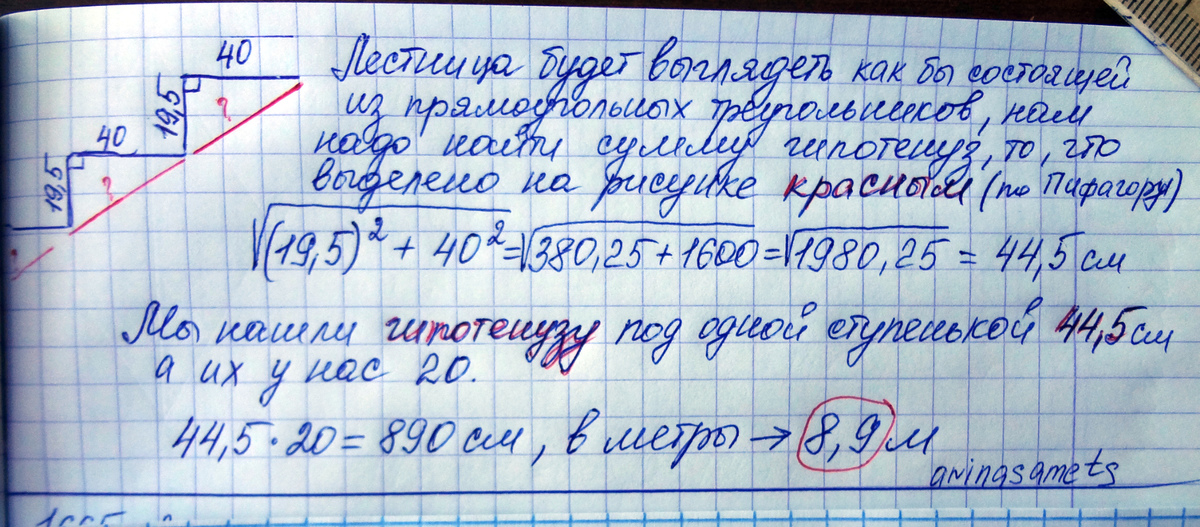 40
19,5
?
40
19,5
?
Лестница будет выглядеть как бы состоящей
из прямоугольных треугольников, нам
надо найти сумму гипотенуз, то, что
выделено на рисунке красным (по Пифагору)
√(19,5)² + 40² = √380,25 + 1600 = √1980,25 = 44,5 см
Мы нашли гипотенузу под одной ступенькой 44,5 см
а их у нас 20.
44,5 · 20 = 890 см, в метры → 8,9 м
aningsamets